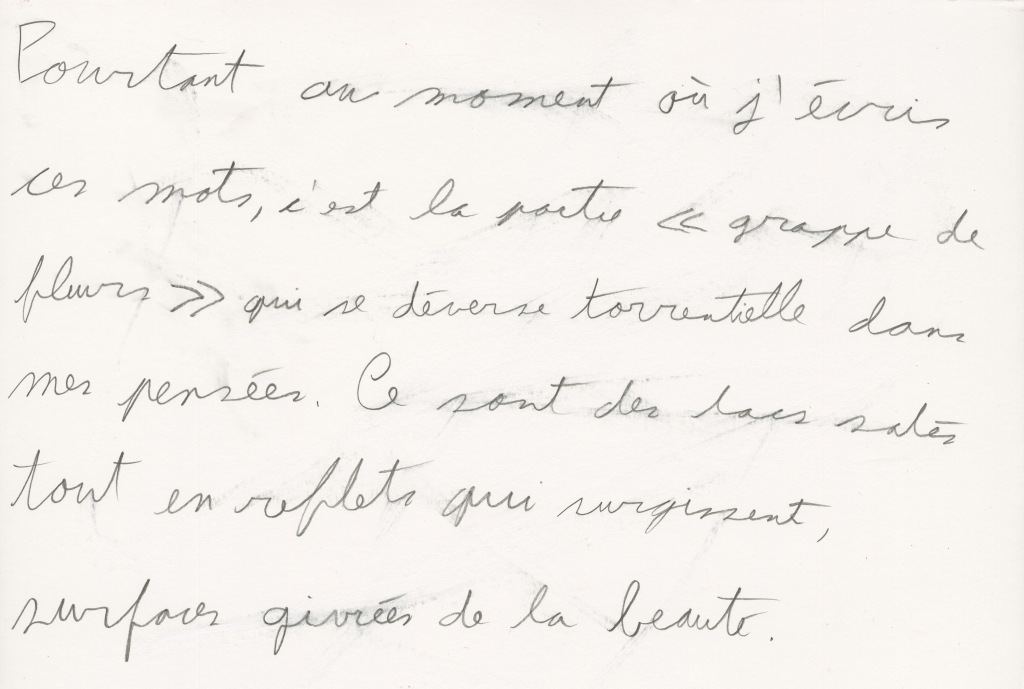 Pourtant au moment où j'écris
ces mots, c'est la partie « grappe de
fleurs » qui se déverse torrentielle dans
mes pensées. Ce sont des lacs salés
tout en reflets qui surgissent,
surfaces givrées de la beauté.